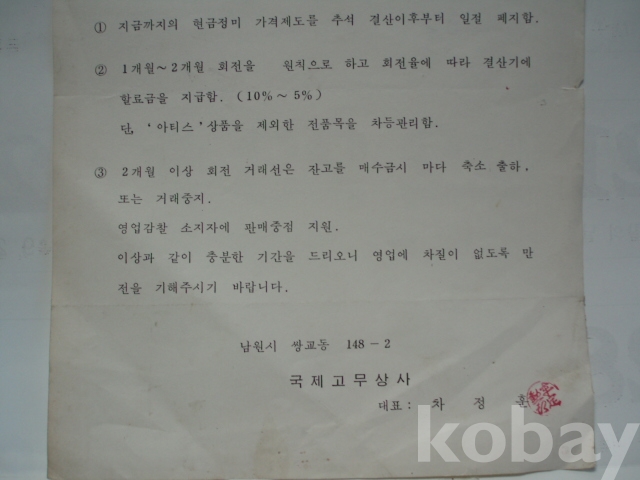 ① 지금까지의 현금정미 가격제도를 추석 결산이후부터 일절 폐지함.
② 1개월～2개월 회전을 원칙으로 하고 회전율에 따라 결산기에
할료금을 지급함. (10%～5%)
단, '아티스' 상품을 제외한 전품목을 차등관리함.
③ 2개월 이상 회전 거래선은 잔고를 매수금시 마다 축소 출하,
또는 거래중지.
영업감찰 소지자에 판매중점 지원.
이상과 같이 충분한 기간을 드리오니 영업에 차질이 없도록 만
전을 기해주시기 바랍니다.
남원시 쌍교동 148－2
국제고무상사
대표: 차 정 훈
kobay